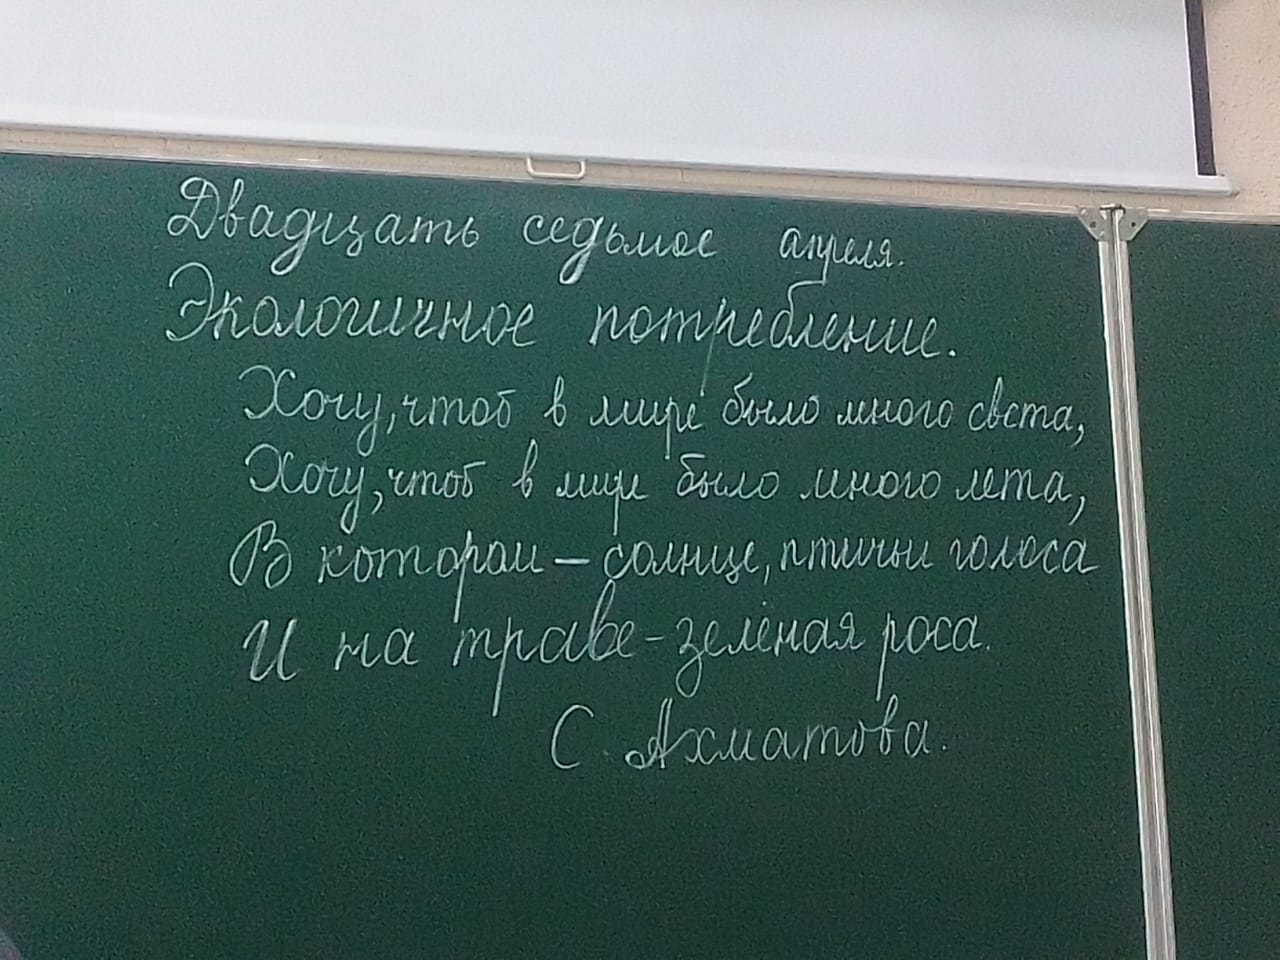 Двадцать седьмое апреля.
Экологичное потребление.
Хочу, чтоб в мире было много света,
Хочу, чтоб в мире было много лета,
В котором – солнце, птичьи голоса
И на траве – зелёная роса.
С. Ахматова.